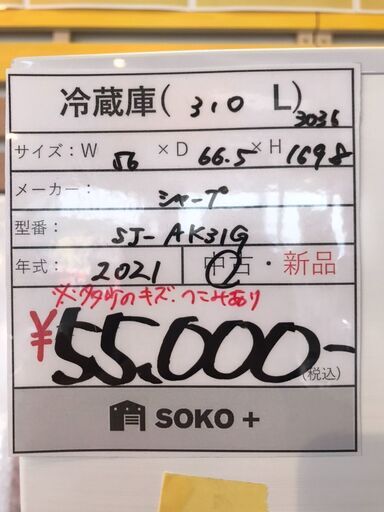 冷蔵庫( 310 L)
3036
サイズ:W 56 ×D 66.5 ×H 169.8
メーカー: シャープ
型番: SJ-AK31G
年式: 2021 中古・新品
※多少のキズ.へこみあり
¥55.000-
(税込)
SOKO +